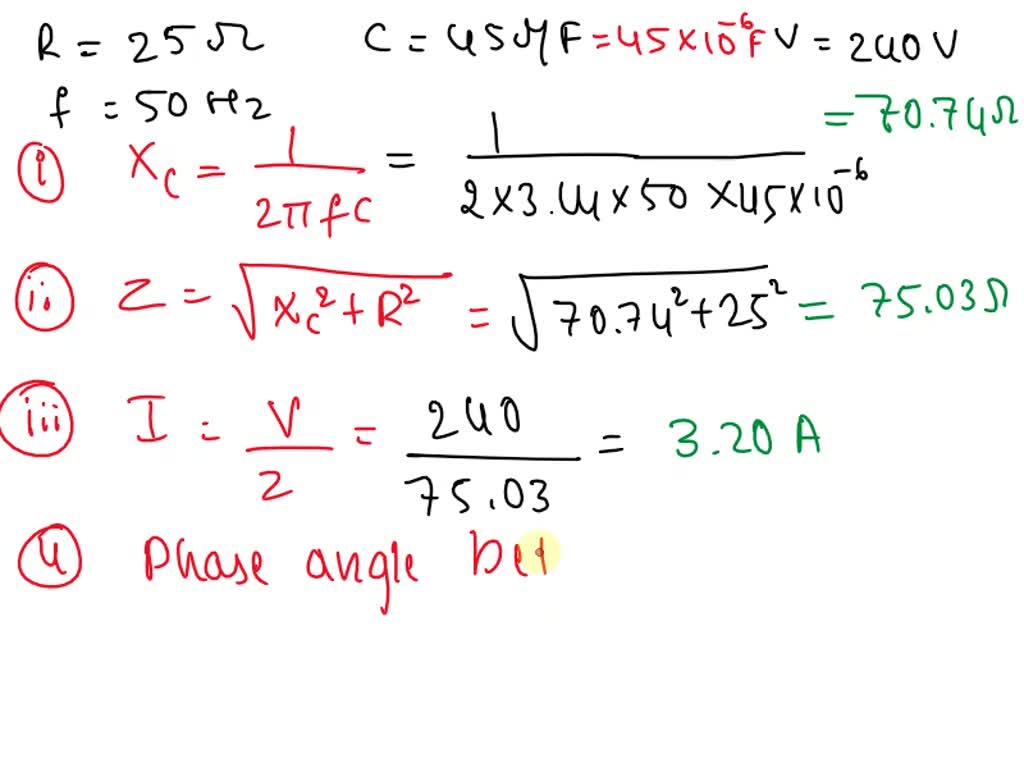 R = 25 Ω C = 45 μF = 45×10⁻⁶F V = 240 V
f = 50 Hz
= 70.74Ω
(i) Xc = 1/2πfC = 1/2×3.14×50×45×10⁻⁶
(ii.) Z = √Xc²+R² = √70.74²+25² = 75.03Ω
(iii) I = V/Z = 240/75.03 = 3.20 A
(4) Phase angle bet